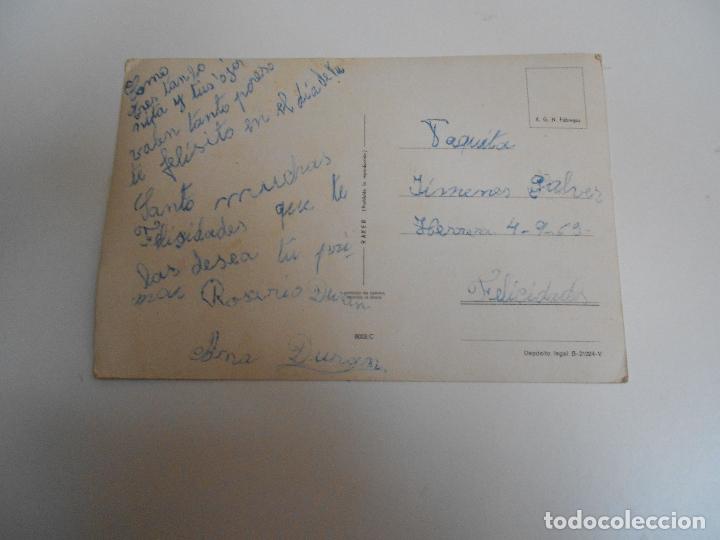 Como
eres tan bo
nita y tus ojos
valen tanto poreso
te felisito en el día de tu
Santo muchas
Felisidades que te
las desea tu pri-
mas Rosario Duran
Ana Duran
RAKER (Prohibida la reproducción)
8003/C
X. G. N. Fábregas
Paquita
Jimenes Galvez
Herrera 4-9-63-
Felicidades
Depósito legal B-21224-V
todocoleccion
todocoleccion.net